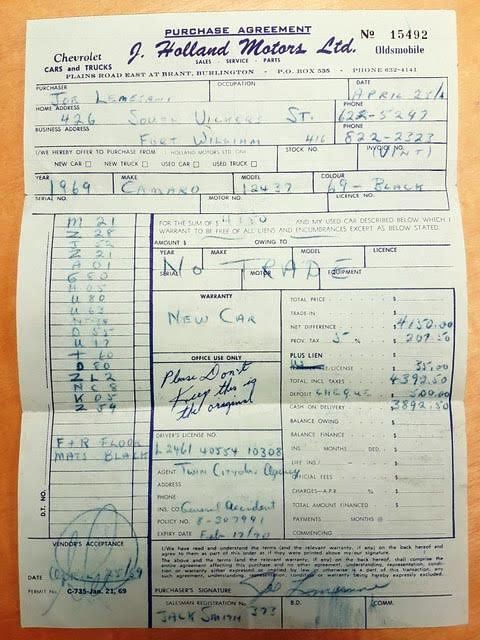 PURCHASE AGREEMENT
Nº 15492
Chevrolet
CARS and TRUCKS
J. Holland Motors Ltd.
Oldsmobile
SALES - SERVICE - PARTS
PLAINS ROAD EAST AT BRANT, BURLINGTON - P.O. BOX 535 - PHONE 632-4141
PURCHASER
OCCUPATION
DATE
APRIL 25/
HOME ADDRESS
PHONE
426 SOUTH VICKERS ST. 622-5297
BUSINESS ADDRESS
PHONE
FORT WILLIAM 416 822-2323
I/WE HEREBY OFFER TO PURCHASE FROM HOLLAND MOTORS LTD. ONE
STOCK NO.
INVOICE NO.
NEW CAR ☐ NEW TRUCK ☐ USED CAR ☐ USED TRUCK ☐
(VINT)
YEAR MAKE MODEL COLOUR
1969 CAMARO 12437 69-BLACK
SERIAL NO. MOTOR NO. LICENCE NO.
M 21
Z 28
J 52
Z 21
A 01
G 80
H 05
U 80
U 63
D 55
U 17
T 60
D 80
Z L 2
N C 8
K 05
Z 54
F + R FLOOR
MATS BLACK
D.T. NO.
VENDOR'S ACCEPTANCE
DATE April 25/69
PERMIT NO. C-735-Jan. 21, 69
FOR THE SUM OF $ 4150 AND MY USED CAR DESCRIBED BELOW WHICH I
WARRANT TO BE FREE OF ALL LIENS AND ENCUMBRANCES EXCEPT AS BELOW STATED.
AMOUNT $ OWING TO
YEAR MAKE MODEL LICENCE
No TRADE
SERIAL MOTOR EQUIPMENT
WARRANTY
NEW CAR
OFFICE USE ONLY
Please Don't
Keep this is
the original
DRIVER'S LICENSE NO.
L2461 40554 10308
AGENT Twin City Agency
ADDRESS
PHONE
INS. CO. General Accident
POLICY NO. 8-307991
EXPIRY DATE Feb 17/70
TOTAL PRICE $
TRADE-IN $
NET DIFFERENCE $ 4150.00
PROV. TAX 5 % $ 207.50
PLUS LIEN
/LICENSE $ 35.00
TOTAL INCL. TAXES $ 4392.50
DEPOSIT CHEQUE $ 500.00
CASH ON DELIVERY $ 3892.50
BALANCE OWING $
BALANCE FINANCE $
INS. MONTHS DED. $
LIFE INS. $
OFFICIAL FEES $
CHARGES-A.P.R % $
TOTAL AMOUNT FINANCED $
PAYMENTS MONTHS @ $
COMMENCING
I/We have read and understand the terms (and the relevant warranty, if any) on the back hereof and
agree to them as part of this order as if they were printed above my/our signature.
The above and the terms (and the relevant warranty, if any) on the back hereof, shall comprise the
entire agreement affecting this purchase and no other agreement, understanding, representation, condition or warranty either expressed or implied by law or otherwise is a part of this transaction, any
such agreement, understanding, representation, condition or warranty being hereby expressly excluded.
PURCHASER'S SIGNATURE
SALESMAN REGISTRATION No. 373
B.D.
COMM.
JACK SMITH